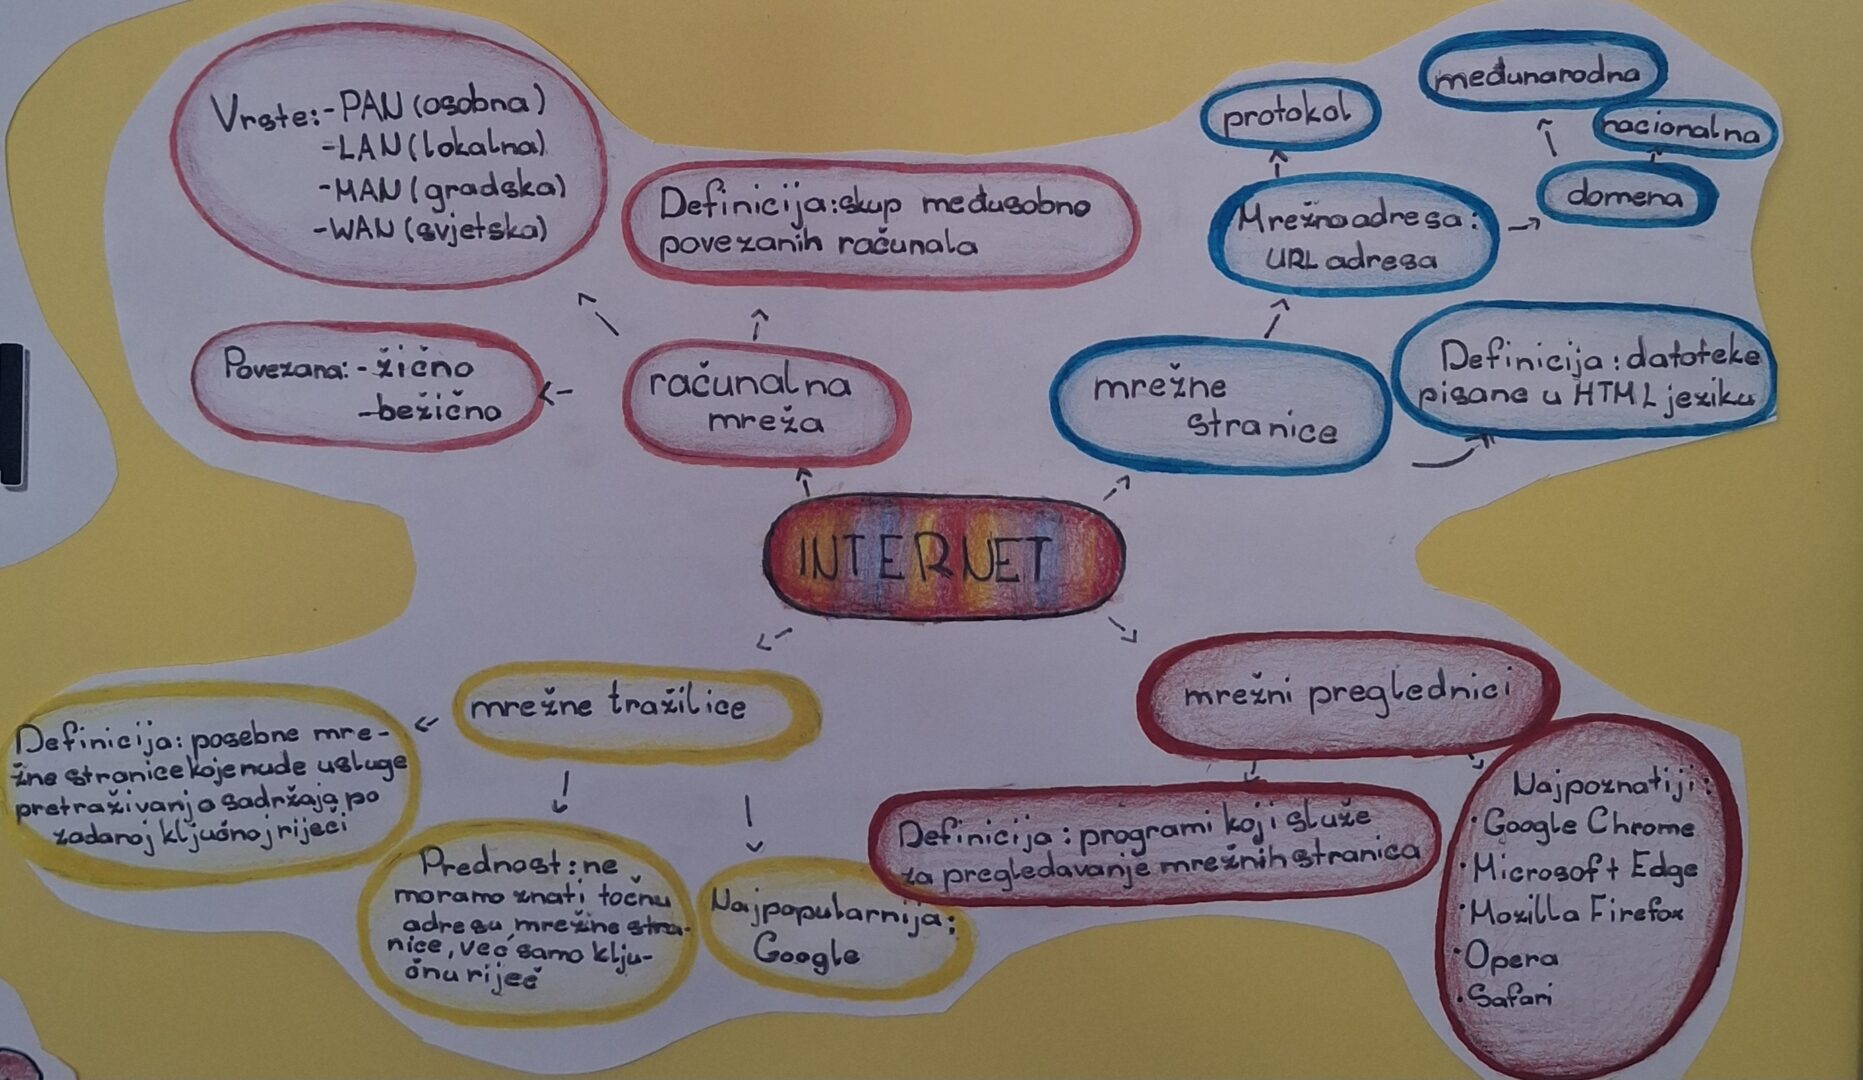 Vrste: - PAN (osobna)
- LAN (lokalna)
- MAN (gradska)
- WAN (svjetska)
Definicija: skup međusobno
povezanih računala
Povezana: - žično
- bežično
računalna
mreža
protokol
međunarodna
nacionalna
domena
Mrežna adresa:
URL adresa
mrežne
stranice
Definicija: datoteke
pisane u HTML jeziku
INTERNET
mrežne tražilice
Definicija: posebne mre-
žne stranice koje nude usluge
pretraživanja sadržaja po
zadanoj ključnoj riječi
Prednost: ne
moramo znati točnu
adresu mrežne stra-
nice, već samo klju-
čnu riječ
Najpopularnija:
Google
mrežni preglednici
Definicija: programi koji služe
za pregledavanje mrežnih stranica
Najpoznatiji:
· Google Chrome
· Microsoft Edge
· Mozilla Firefox
· Opera
· Safari